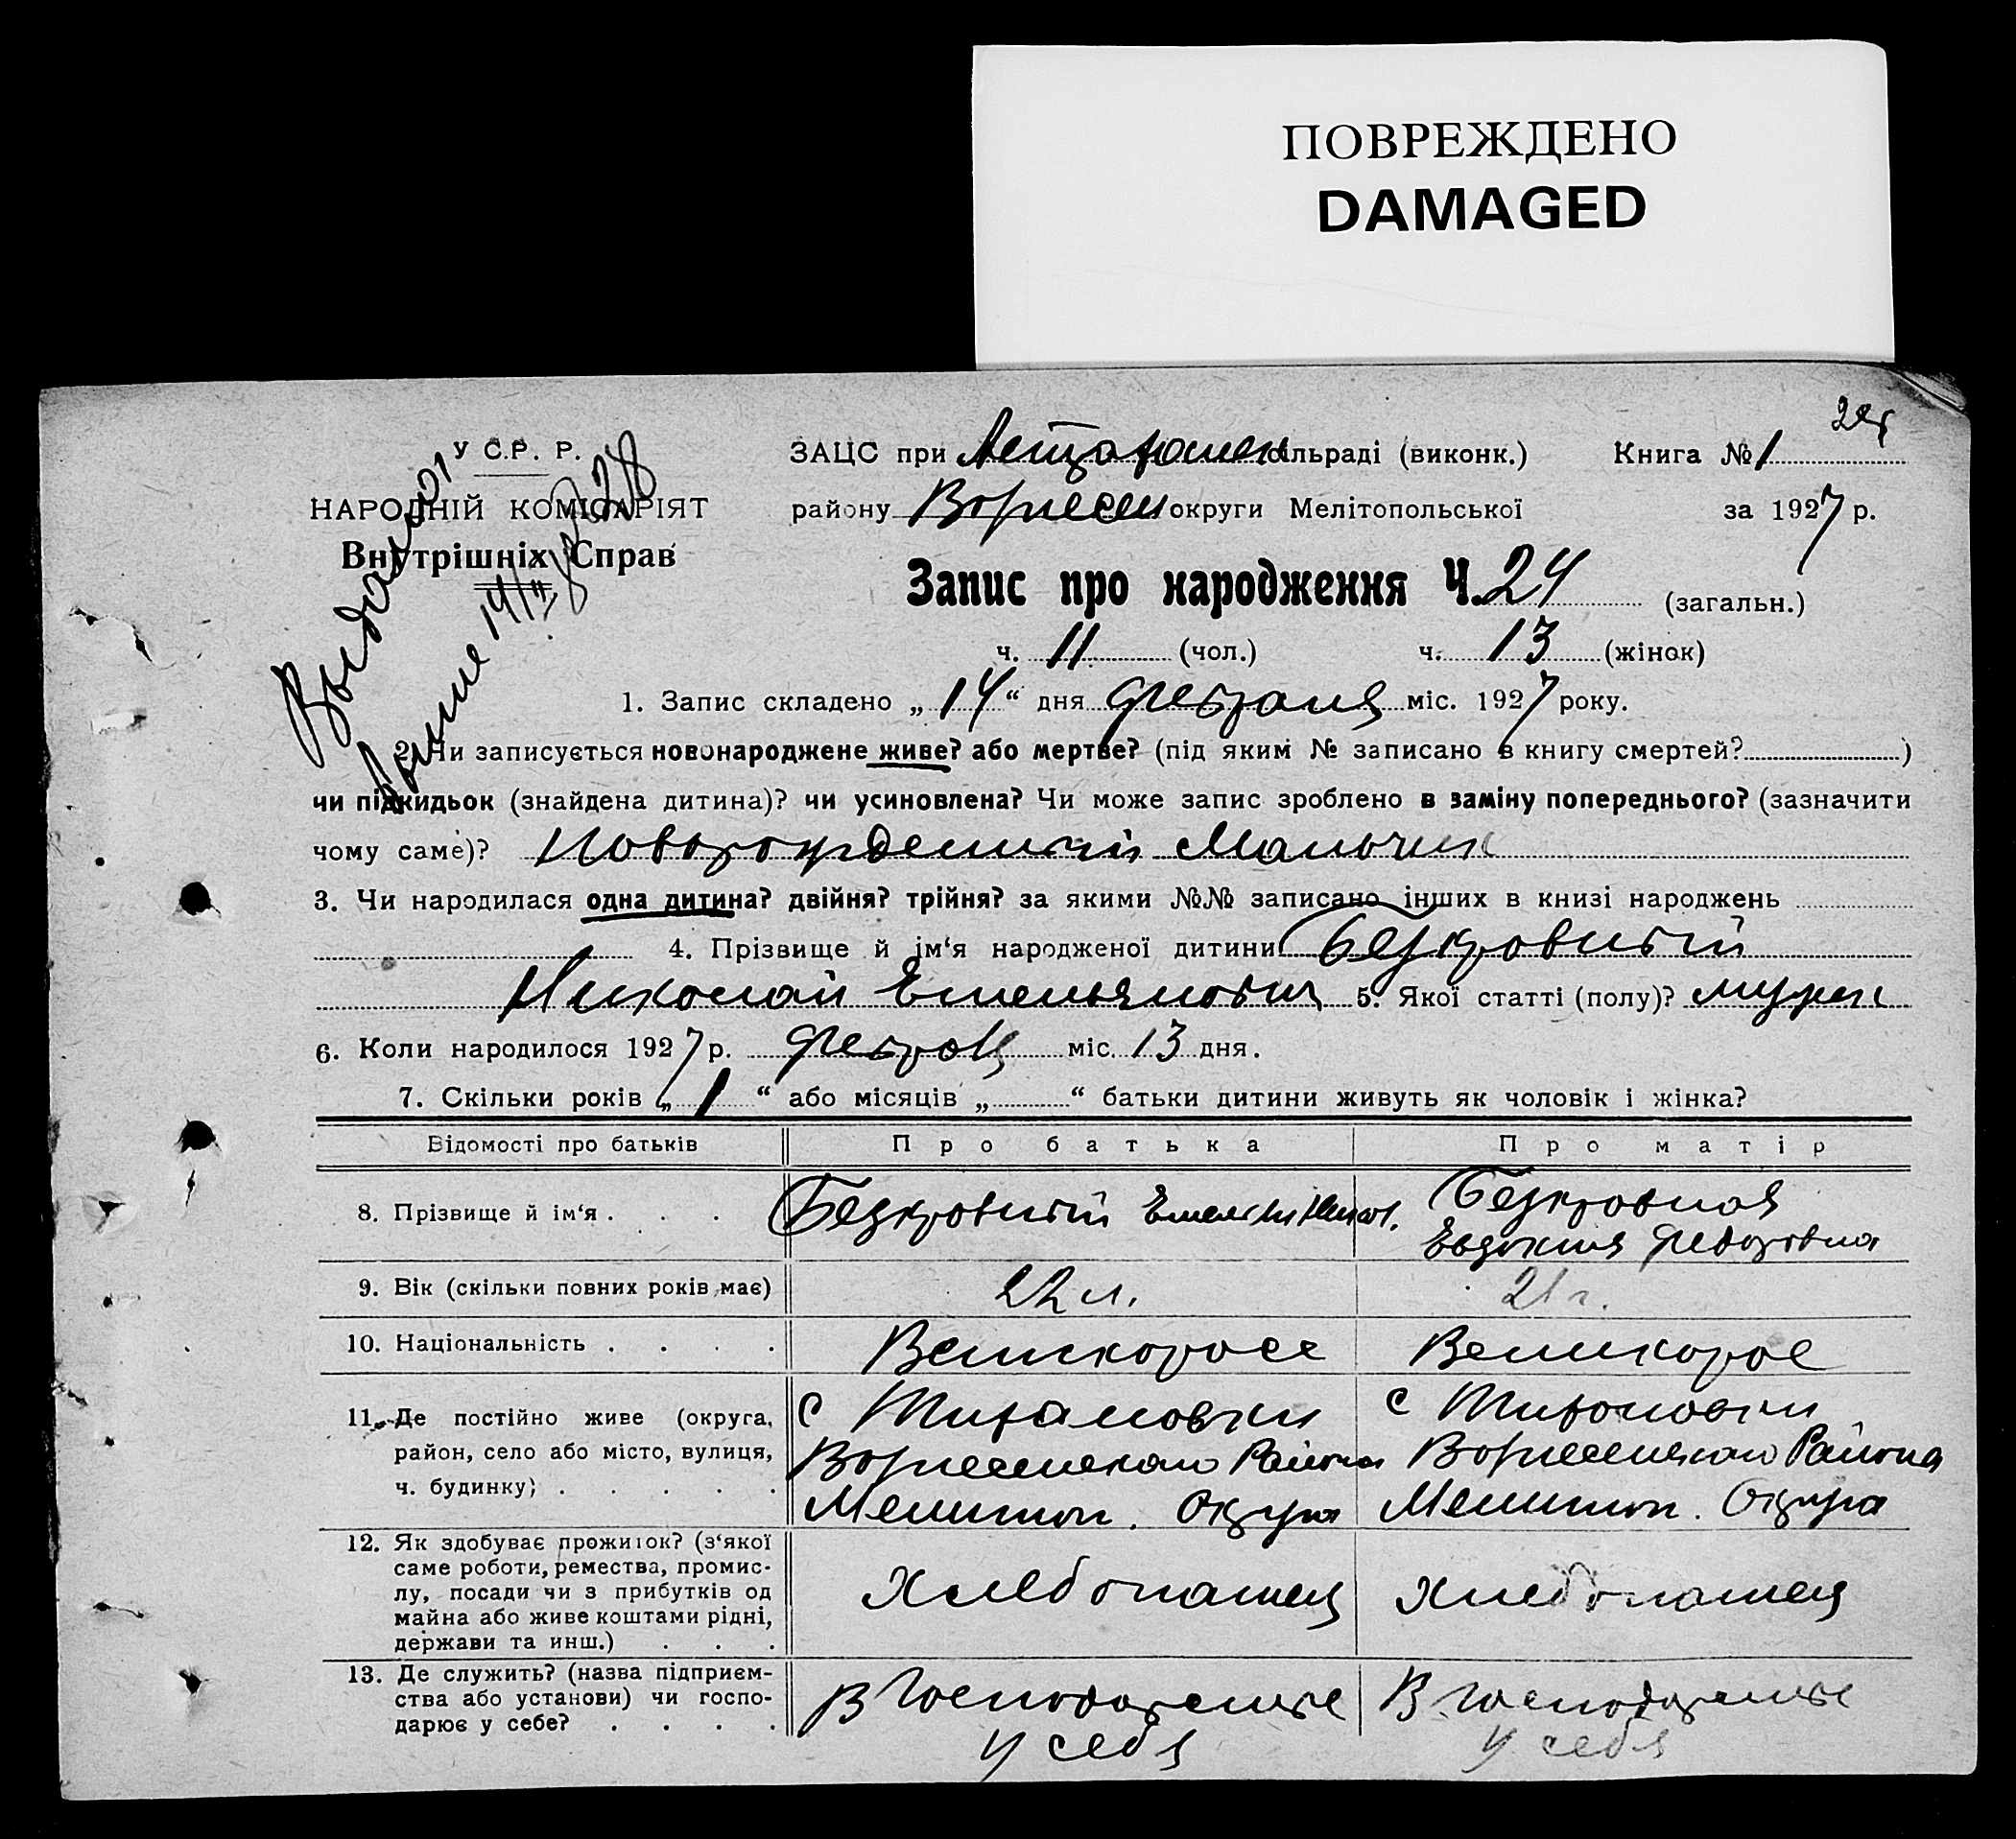 ПОВРЕЖДЕНО
DAMAGED
У С.Р. Р.
НАРОДНІЙ КОМІСАРІЯТ
Внутрішніх Справ
ЗАЦС при сільраді (виконк.) Книга № 1
району Вознесен округи Мелітопольської за 1927 р.
Запис про народження Ч. 24 (загальн.)
ч. 11 (чол.) ч. 13 (жінок)
1. Запис складено „ 14 “ дня февраля міс. 1927 року.
2. Чи записується новонароджене живе? або мертве? (під яким № записано в книгу смертей? )
чи підкидьок (знайдена дитина)? чи усиновлена? Чи може запис зроблено в заміну попереднього? (зазначити
чому саме)? Новорожденный Мальчик
3. Чи народилася одна дитина? двійня? трійня? за якими №№ записано інших в книзі народжень
4. Прізвище й ім‘я народженої дитини Безкровный
Николай Емельянович 5. Якої статті (полу)? мужск
6. Коли народилося 1927 р. феврал міс. 13 дня.
7. Скільки років „ 1 “ або місяців „ “ батьки дитини живуть як чоловік і жінка?
Відомості про батьків Про батька Про матір
8. Прізвище й ім‘я . . . Безкровный Безкровная
Евдокия Федоровна
9. Вік (скільки повних років має) 22 л. 21 г.
10. Національність . . . . Великоросс Великорос
11. Де постійно живе (округа,
район, село або місто, вулиця,
ч. будинку) . . . . .
с Тифановки
Вознесенскаго Района
Мелитоп. Округа
с Тифоновки
Вознесенскаго Района
Мелитоп. Округа
12. Як здобуває прожиток? (з‘якої
саме роботи, ремества, промис-
лу, посади чи з прибутків од
майна або живе коштами рідні,
держави та инш.) . . .
Хлебопашец
Хлебопашец
13. Де служить? (назва підприєм-
ства або установи) чи госпо-
дарює у себе? . . . .
В
у себя
В
у себя